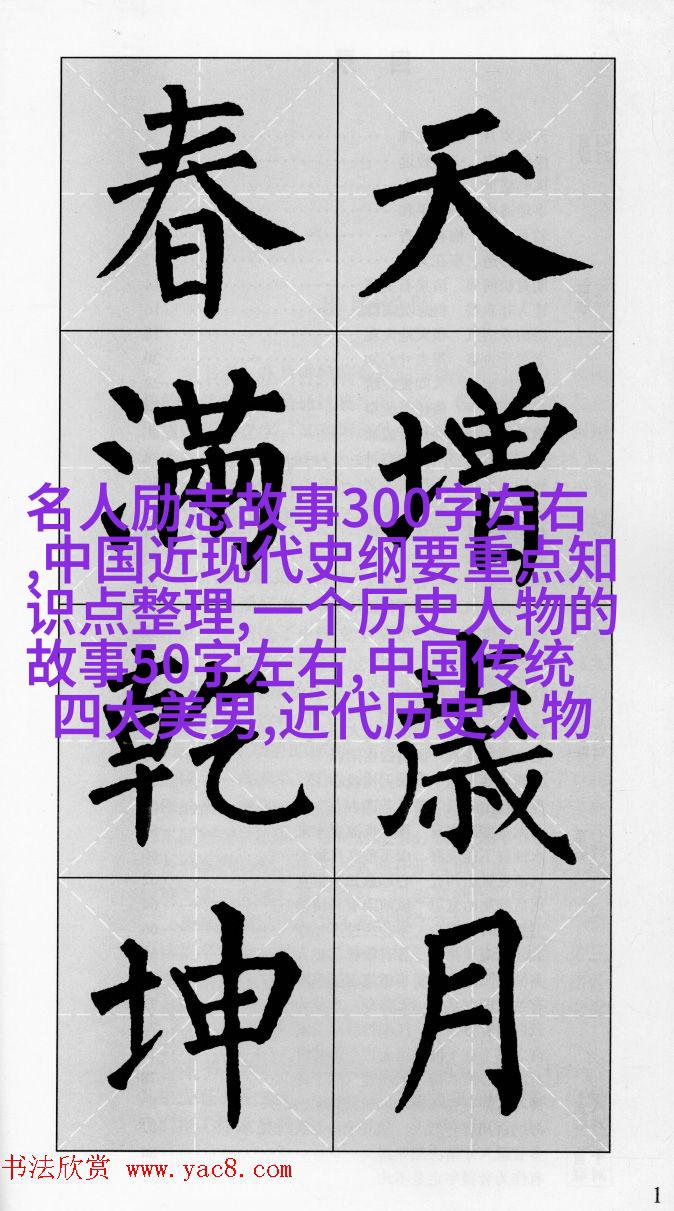 天增歲月
春滿乾坤
名人励志故事300字左右
,中国近现代史纲要重点知
识点整理,一个历史人物的
故事50字左右,中国传统
四大美男,近代历史人物
书法欣赏 www.yac8.com
1